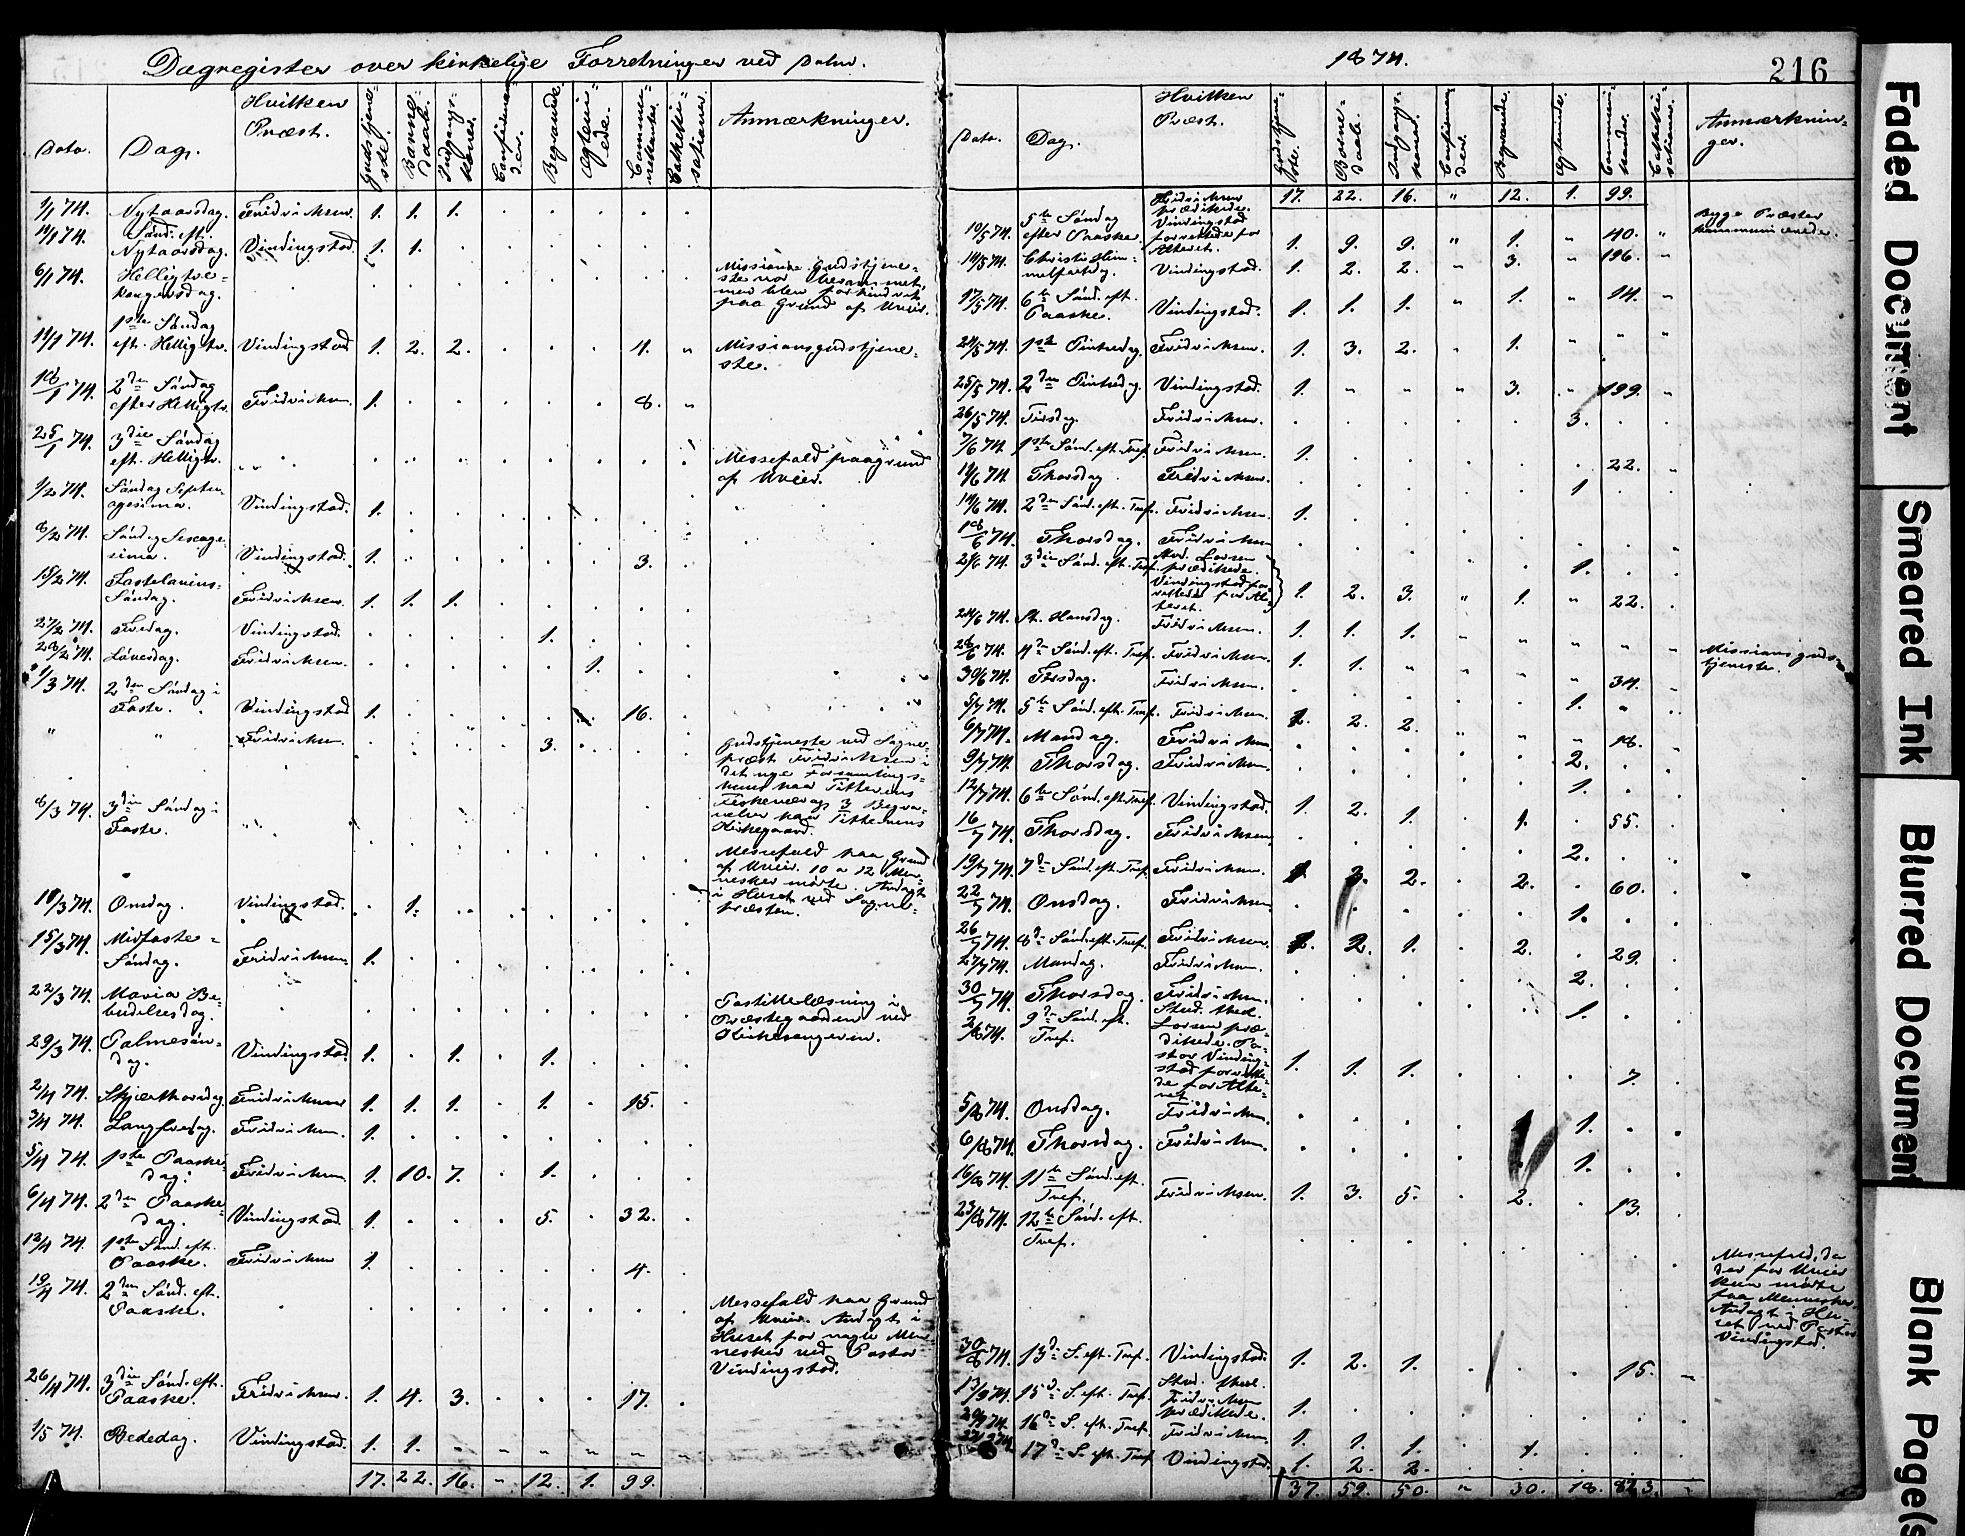 Dagregister over kirkelige Forretninger ved
1874.
216
Dato. Dag. Hvilken Præst. Gudstjeneste. Barnedaab. Indgangskoner. Confirmander. Begravede. Ægteviede. Communicanter. Cathekisationer. Anmærkninger.
1/1 74. Nytaarsdag. Fridrichsen. 1. 1. 1.
4/1 74. Sønd. eft. Nytaarsdag. Vindingstad. 1. 1.
6/1 74. Helligtrekongersdag. Missions Gudstjeneste var berammet, men blev forhindret paa Grund af Uveir.
11/1 74. 1ste Søndag eft. Helligtr. Vindingstad 1. 2. 2. 4. " Missionsgudstjeneste.
18/1 74. 2den Søndag efter Helligtr. Fridrichsen. 1. 8. "
25/1 74. 3die Søndag eft. Helligtr. Messefald paagrund af Uveir.
1/2 74. Søndag Septuagesima. Vindingstad. 1.
8/2 74. Søndag Sexagesima. Vindingstad. 1. 3.
15/2 74. Fastelavns-Søndag. Fridrichsen. 1. 1. 1.
27/2 74. Fredag. Vindingstad. 1.
28/2 74. Løverdag. Fridrichsen. 1.
1/3 74. 2den Søndag i Faste. Vindingstad 1. 16.
" " Fridrichsen. 3. Gudstjeneste ved Sognepræst Fridrichsen i det nye Forsamlingshuus paa Tittrens Fiskevær og 3 Begravelser paa Titterens Kirkegaard.
8/3 74. 3die Søndag i Faste. Messefald paa Grund af Uveir. 10 a 12 Mennesker mødte. Andagt i Huset ved Sognepræsten.
18/3 74. Onsdag. Vindingstad. 1.
15/3 74. Midfaste-Søndag. Fridrichsen. 1.
22/3 74. Maria Bebudelsesdag. Postillelæsning i Præstegaarden ved Kirkesangeren.
29/3 74. Palmesøndag. Vindingstad 1. 1. 1.
2/4 74. Skjærthorsdag. Fridrichsen 1. 1. 1. 1. 15.
3/4 74. Langfredag. Fridrichsen. 1.
5/4 74. 1ste Paaskedag. Fridrichsen. 1. 10. 7. 1.
6/4 74. 2den Paaskedag. Vindingstad 1. 5. 32.
12/4 74. 1ste Sønd. eft. Paaske. Fridrichsen 1. 4.
19/4 74. 2den Sønd. eft. Paaske. Messefald paa Grund af Uveir. Andagt i Huset for nogle Mennesker ved Pastor Vindingstad.
26/4 74. 3die Sønd. eft. Paaske. Fridrichsen. 1. 4. 3. 17.
1/5 74. Bededag. Vindingstad. 1. 1. " " " " "
17. 22. 16. " 12. 1. 99.
Dato. Dag. Hvilken Præst. Gudstjeneste. Barnedaab. Indgangskoner. Confirmander. Begravede. Ægteviede. Communicanter. Cathekisationer. Anmærkninger.
17. 22. 16. " 12. 1. 99.
10/5 74. 5te Søndag efter Paaske. Fridrichsen prædikede. Vindingstad forrettede for Alteret. 1. 9. 9. " 1. " 40. " Begge Præster kommunicerede.
14/5 74. Christi Himmelfartdg. Vindingstad. 1. 2. 2. " 3. " 196. "
17/5 74. 6te Sønd. eft. Paaske. Vindingstad. 1. 1. 1. " 1. " 14. "
24/5 74. 1ste Pintsedag. Fridrichsen. 1. 3. 2. " 1. " " "
25/5 74. 2den Pintsedag. Vindingstad. 1. " " " 3. 199. "
26/5 74. Tirsdag. Fridrichsen. 3.
7/6 74. 1ste Sønd. eft. Tref. Fridrichsen. 1. 22. "
11/6 74. Thorsdag Fridrichsen. 1
14/6 74. 2den Sønd. eft. Tref. Fridrichsen. 1.
18/6 74. Thorsdag. Fridrichsen 1.
21/6 74. 3die Sønd. eft. Tref. Larsen prædikede. Vindingstad forrettede for Alteret. 1. 2. 3. " 1. " 22.
24/6 74. St. Hansdag. Fridrichsen. 1. 1. 1. " " " " "
28/6 74. 4de Sønd. eft. Tref. Fridrichsen. 1. 1. " " " " 34. Missionsgudstjeneste.
30/6 74. Tirsdag. Fridrichsen. 1.
5/7 74. 5te Sønd. eft. Tref. Fridrichsen. 1. 2. 2. " " " 18. "
6/7 74. Mandag. Fridrichsen. 2.
9/7 74. Thorsdag. Fridrichsen. 1.
12/7 74. 6te Sønd. eft. Tref. Vindingstad. 1. 2. 1. 1. 55.
16/7 74. Thorsdag. Fridrichsen. 2.
19/7 74. 7de Sønd. eft. Tref. Fridrichsen. 1. 3. 2. 2. 60.
22/7 74. Onsdag. Fridrichsen. 1.
26/7 74. 8de Sønd. eft. Tref. Fridrichsen. 1. 2. 1. 2. 29.
27/7 74. Mandag. Fridrichsen. 2.
30/7 74. Thorsdag. Fridrichsen. 1.
2/8 74. 9de Sønd. eft. Tref. Stud. theol. Larsen prædikede. Pastor Vindingstad forrettede for Alteret. 1. 1. 1. 7.
5/8 74. Onsdag. Fridrichsen. 1.
6/8 74. Thorsdag. Fridrichsen. 1.
16/8 74. 11te Sønd. eft. Tref. Fridrichsen. 1. 3. 5. 2. 13.
23/8 74. 12te Sønd. eft. Tref. Messefald, da der for Uveir kun mødte faa Mennesker. Andagt i Huset ved Pastor Vindingstad.
30/8 74. 13de S. eft. Tref. Vindingstad. 1. 2. 1. 15. "
13/9 74. 15de S. eft. Tref. Stud. theol. Fridrichsen prædikede. 1.
20/9 74. 16de S. eft. Tref. Fridrichsen. 1. 1. 1. 1.
27/9 74. 17de S. eft. Tref. Vindingstad. 1. 2. 2.
37. 59. 50. " 30. 18. 823. "
Faded Document
Smeared Ink
Blurred Document
Blank Page(s